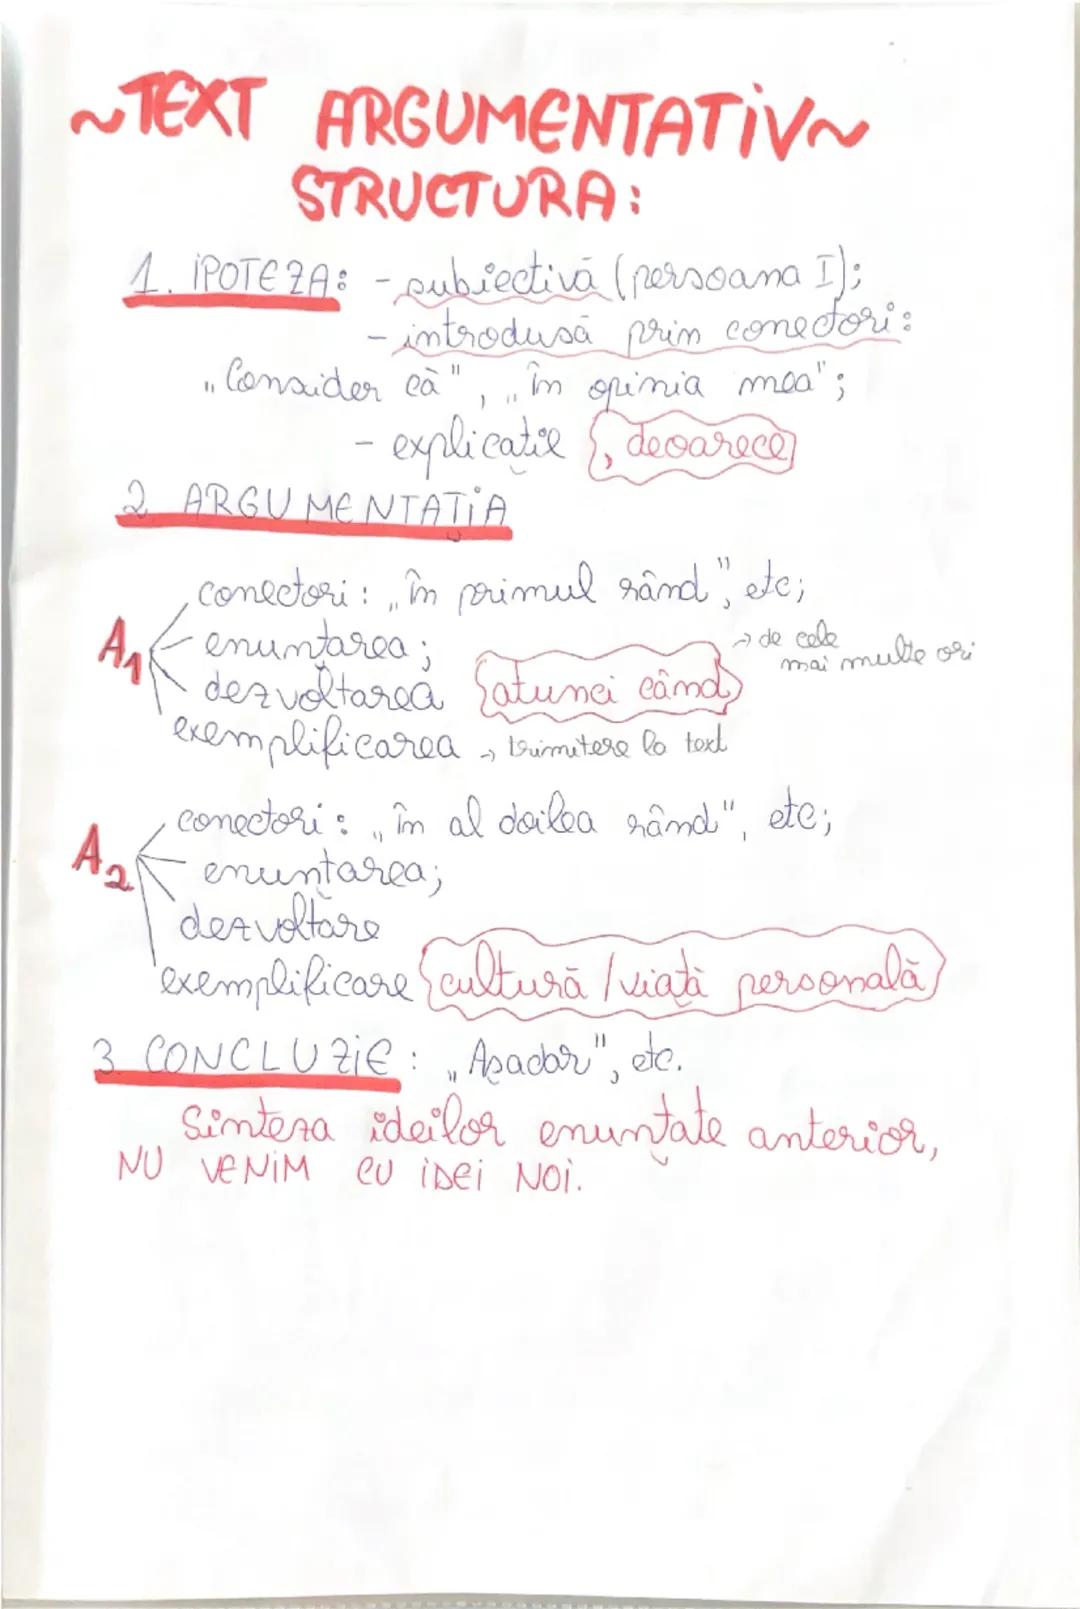 ~TEXT ARGUMENTATIV~
STRUCTURA:
1. IPOTEZA: - subiectivă (persoana I);
- introdusă prin conectori:
„Consider că", „în opinia mea";
- explicație , deoarece
2 ARGUMENTAȚIA
conectori: „în primul rând", etc;
A1 enunțarea;
→ de cele mai multe ori
dezvoltarea atunci când
exemplificarea → trimitere la text
conectori: „în al doilea rând", etc;
A2 enunțarea;
dezvoltare
exemplificare cultură/viață personală
3 CONCLUZIE: „Așadar", etc.
Sinteza ideilor enunțate anterior,
NU VENIM CU IDEI NOI.